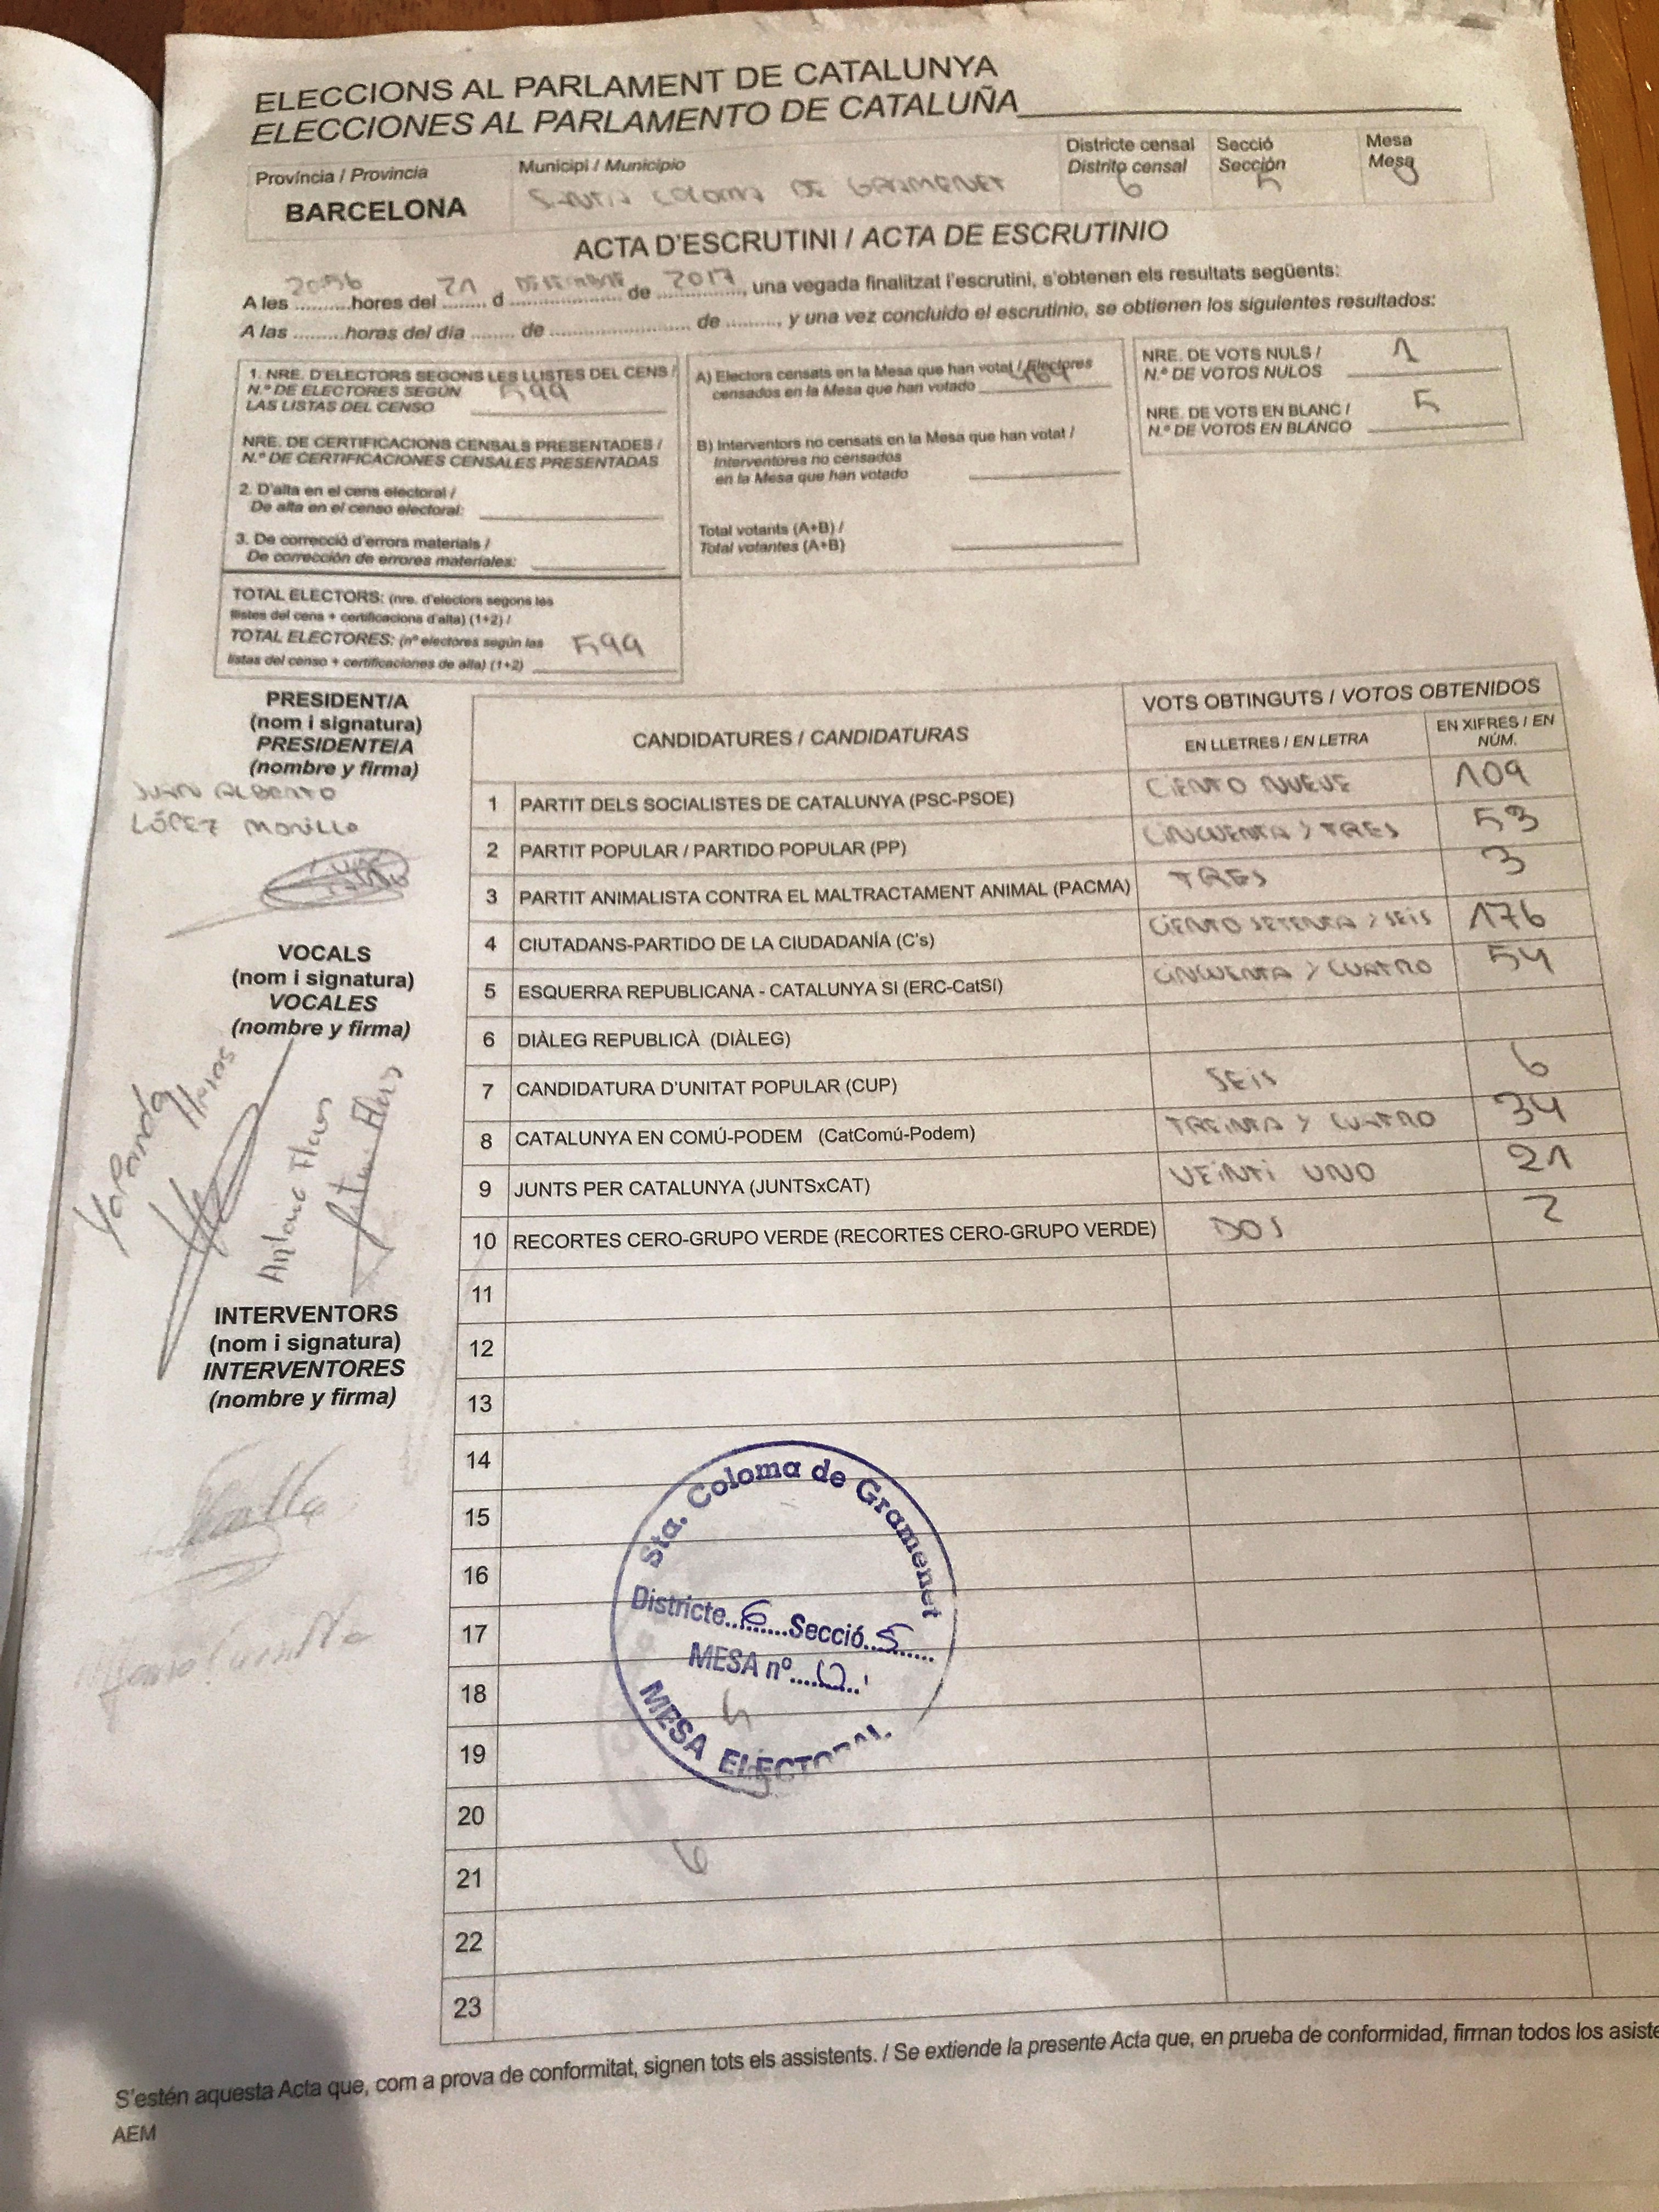 ELECCIONS AL PARLAMENT DE CATALUNYA
ELECCIONES AL PARLAMENTO DE CATALUÑA
Província / Provincia
BARCELONA
Municipi / Municipio
SANTA COLOMA DE GRAMENET
Districte censal
Distrito censal
6
Secció
Sección
5
Mesa
Mesa
ACTA D'ESCRUTINI / ACTA DE ESCRUTINIO
A les 20:56 hores del 21 d DESEMBRE de 2017, una vegada finalitzat l'escrutini, s'obtenen els resultats següents:
A las .........horas del día ....... de ........................ de ........., y una vez concluido el escrutinio, se obtienen los siguientes resultados:
1. NRE. D'ELECTORS SEGONS LES LLISTES DEL CENS /
N.º DE ELECTORES SEGÚN
LAS LISTAS DEL CENSO
599
NRE. DE CERTIFICACIONS CENSALS PRESENTADES /
N.º DE CERTIFICACIONES CENSALES PRESENTADAS
2. D'alta en el cens electoral /
De alta en el censo electoral:
3. De correcció d'errors materials /
De corrección de errores materiales:
TOTAL ELECTORS: (nre. d'electors segons les
llistes del cens + certificacions d'alta) (1+2) /
TOTAL ELECTORES: (nº electores según las
listas del censo + certificaciones de alta) (1+2)
599
A) Electors censats en la Mesa que han votat / Electores
censados en la Mesa que han votado
B) Interventors no censats en la Mesa que han votat /
Interventores no censados
en la Mesa que han votado
Total votants (A+B) /
Total votantes (A+B)
NRE. DE VOTS NULS /
N.º DE VOTOS NULOS
1
NRE. DE VOTS EN BLANC /
N.º DE VOTOS EN BLANCO
5
PRESIDENT/A
(nom i signatura)
PRESIDENTE/A
(nombre y firma)
JUAN ALBERTO
LÓPEZ MORILLO
VOCALS
(nom i signatura)
VOCALES
(nombre y firma)
Antonio Flores
INTERVENTORS
(nom i signatura)
INTERVENTORES
(nombre y firma)
CANDIDATURES / CANDIDATURAS
VOTS OBTINGUTS / VOTOS OBTENIDOS
EN LLETRES / EN LETRA
EN XIFRES / EN
NÚM.
1 PARTIT DELS SOCIALISTES DE CATALUNYA (PSC-PSOE) CIENTO NUEVE 109
2 PARTIT POPULAR / PARTIDO POPULAR (PP) CINCUENTA Y TRES 53
3 PARTIT ANIMALISTA CONTRA EL MALTRACTAMENT ANIMAL (PACMA) TRES 3
4 CIUTADANS-PARTIDO DE LA CIUDADANÍA (C's) CIENTO SETENTA Y SEIS 176
5 ESQUERRA REPUBLICANA - CATALUNYA SI (ERC-CatSí) CINCUENTA Y CUATRO 54
6 DIÀLEG REPUBLICÀ (DIÀLEG)
7 CANDIDATURA D'UNITAT POPULAR (CUP) SEIS 6
8 CATALUNYA EN COMÚ-PODEM (CatComú-Podem) TREINTA Y CUATRO 34
9 JUNTS PER CATALUNYA (JUNTSxCAT) VEINTI UNO 21
10 RECORTES CERO-GRUPO VERDE (RECORTES CERO-GRUPO VERDE) DOS 2
11
12
13
14
15
16
17
18
19
20
21
22
23
Sta. Coloma de Gramenet
Districte 6 Secció 5
MESA nº
MESA ELECTORAL
S'estén aquesta Acta que, com a prova de conformitat, signen tots els assistents. / Se extiende la presente Acta que, en prueba de conformidad, firman todos los asiste
AEM